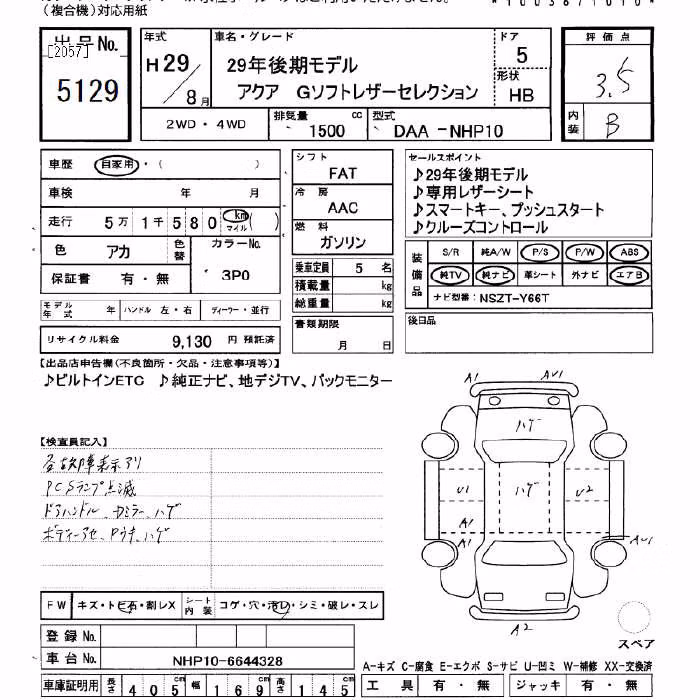 (複合機)対応用紙
出品No.
[2057]
5129
年式
H29/8月
車名・グレード
29年後期モデル
アクア Gソフトレザーセレクション
ドア
5
形状
HB
評価点
3.5
内装
B
2WD・4WD
排気量
1500 cc
型式
DAA-NHP10
車歴 自家用・( )
車検 年 月
走行 5万1千580 km マイル ( )
色 アカ 色替
カラーNo.
3P0
保証書 有・無
モデル年式 年 ハンドル 左・右 ディーラー・並行
リサイクル料金 9,130 円 預託済
シフト
FAT
冷房
AAC
燃料
ガソリン
乗車定員 5 名
積載量 kg
総重量 kg
書類期限
月 日
セールスポイント
♪29年後期モデル
♪専用レザーシート
♪スマートキー、プッシュスタート
♪クルーズコントロール
装備品
S/R 純A/W P/S P/W ABS
純TV 純ナビ 革シート 外ナビ エアB
ナビ型番: NSZT-Y66T
後日品
【出品店申告欄(不良箇所・欠品・注意事項等)】
♪ビルトインETC ♪純正ナビ、地デジTV、バックモニター
【検査員記入】
各故障表示アリ
PCSランプ点滅
ドアハンドル、ドアミラー、ハゲ
A1 AU1
ハゲ
U1 ハゲ U2
A1 A1 AU1
A2
スペア
FW キズ・トビ石・割レX シート内装 コゲ・穴・汚レ・シミ・破レ・スレ
登録No.
車台No. NHP10-6644328
車庫証明用 長さ 405 cm 幅 169 cm 高さ 145 cm
A-キズ C-腐食 E-エクボ S-サビ U-凹ミ W-補修 XX-交換済
工具 有・無 ジャッキ 有・無